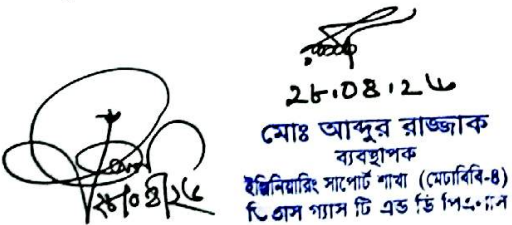 ২৮.০৪.২৬
মোঃ আব্দুর রাজ্জাক
ব্যবস্থাপক
ইঞ্জিনিয়ারিং সাপোর্ট শাখা (মেঢাবিবি-৪)
তিতাস গ্যাস টি এন্ড ডি পিএলসি
২৮/০৪/২৬